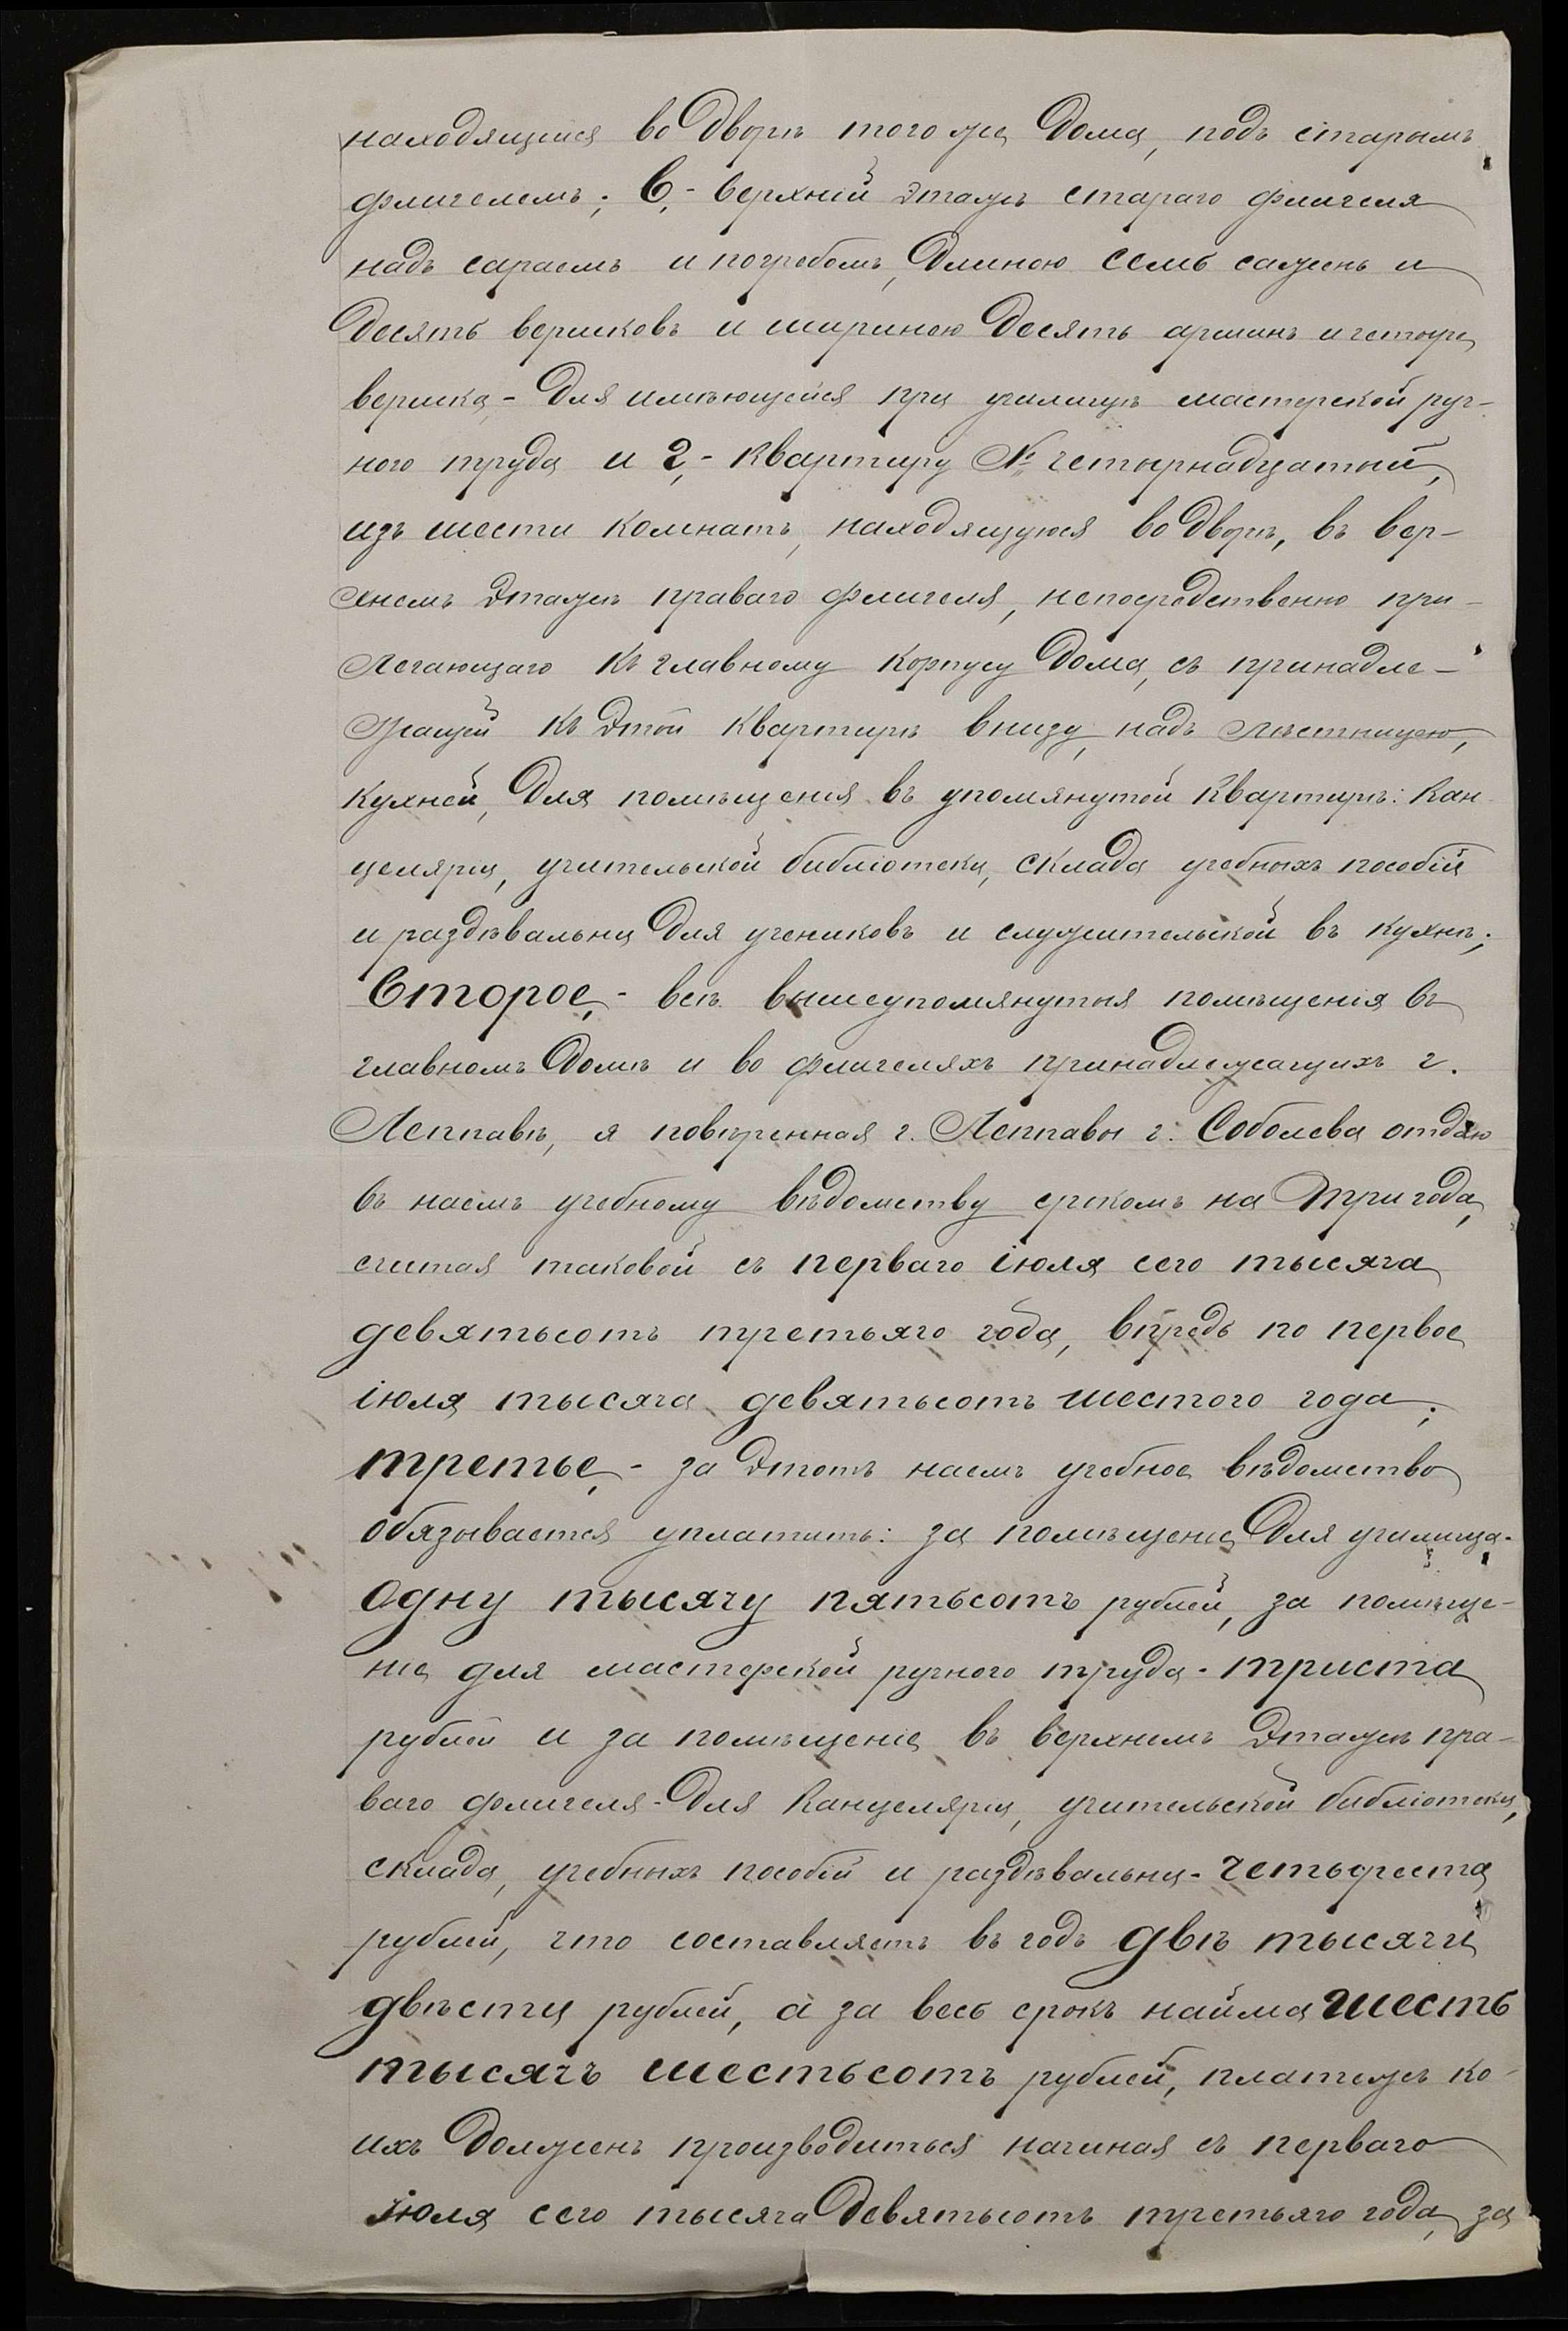 находящейся во дворѣ того же дома, подъ старымъ
флигелемъ; В,- верхній этажъ стараго флигеля
надъ сараемъ и погребомъ, длиною семь сажень и
десять вершковъ и шириною десять аршинъ и четыре
вершка,- для имѣющейся при училищѣ мастерской руч-
ного труда и г,- квартиру № четырнадцатый,
изъ шести комнатъ, находящуюся во дворѣ, въ вер-
хнемъ этажѣ праваго флигеля, непосредственно при-
легающаго къ главному корпусу дома, съ принадле-
жащей къ этой квартирѣ внизу, надъ лѣстницею,
кухней, для помѣщенія въ упомянутой квартирѣ: кан
целяріи, учительской библіотеки, склада учебныхъ пособій
и раздѣвальни для учениковъ и служительской въ кухнѣ;
Второе,- всѣ вышеупомянутыя помѣщенія въ
главномъ домѣ и во флигеляхъ принадлежащихъ г.
Леппавѣ, я повѣренная г. Леппавы г. Соболева отдаю
въ наемъ учебному вѣдомству срокомъ на три года,
считая таковой съ перваго іюля сего тысяча
девятьсотъ третьяго года, впредь по первое
іюля тысяча девятьсотъ шестого года;
третье,- за этотъ наемъ учебное вѣдомство
обязывается уплатить: за помѣщеніе для училища-
одну тысячу пятьсотъ рублей, за помѣще-
ніе для мастерской ручного труда- триста
рублей и за помѣщеніе въ верхнемъ этажѣ пра-
ваго флигеля- для канцеляріи, учительской библіотеки,
склада, учебныхъ пособій и раздѣвальни- четыреста
рублей, что составляетъ въ годъ двѣ тысячи
двѣсти рублей, а за весь срокъ найма шесть
тысячъ шестьсотъ рублей, платежъ ко-
ихъ долженъ производиться начиная съ перваго
іюля сего тысяча девятьсотъ третьяго года, за